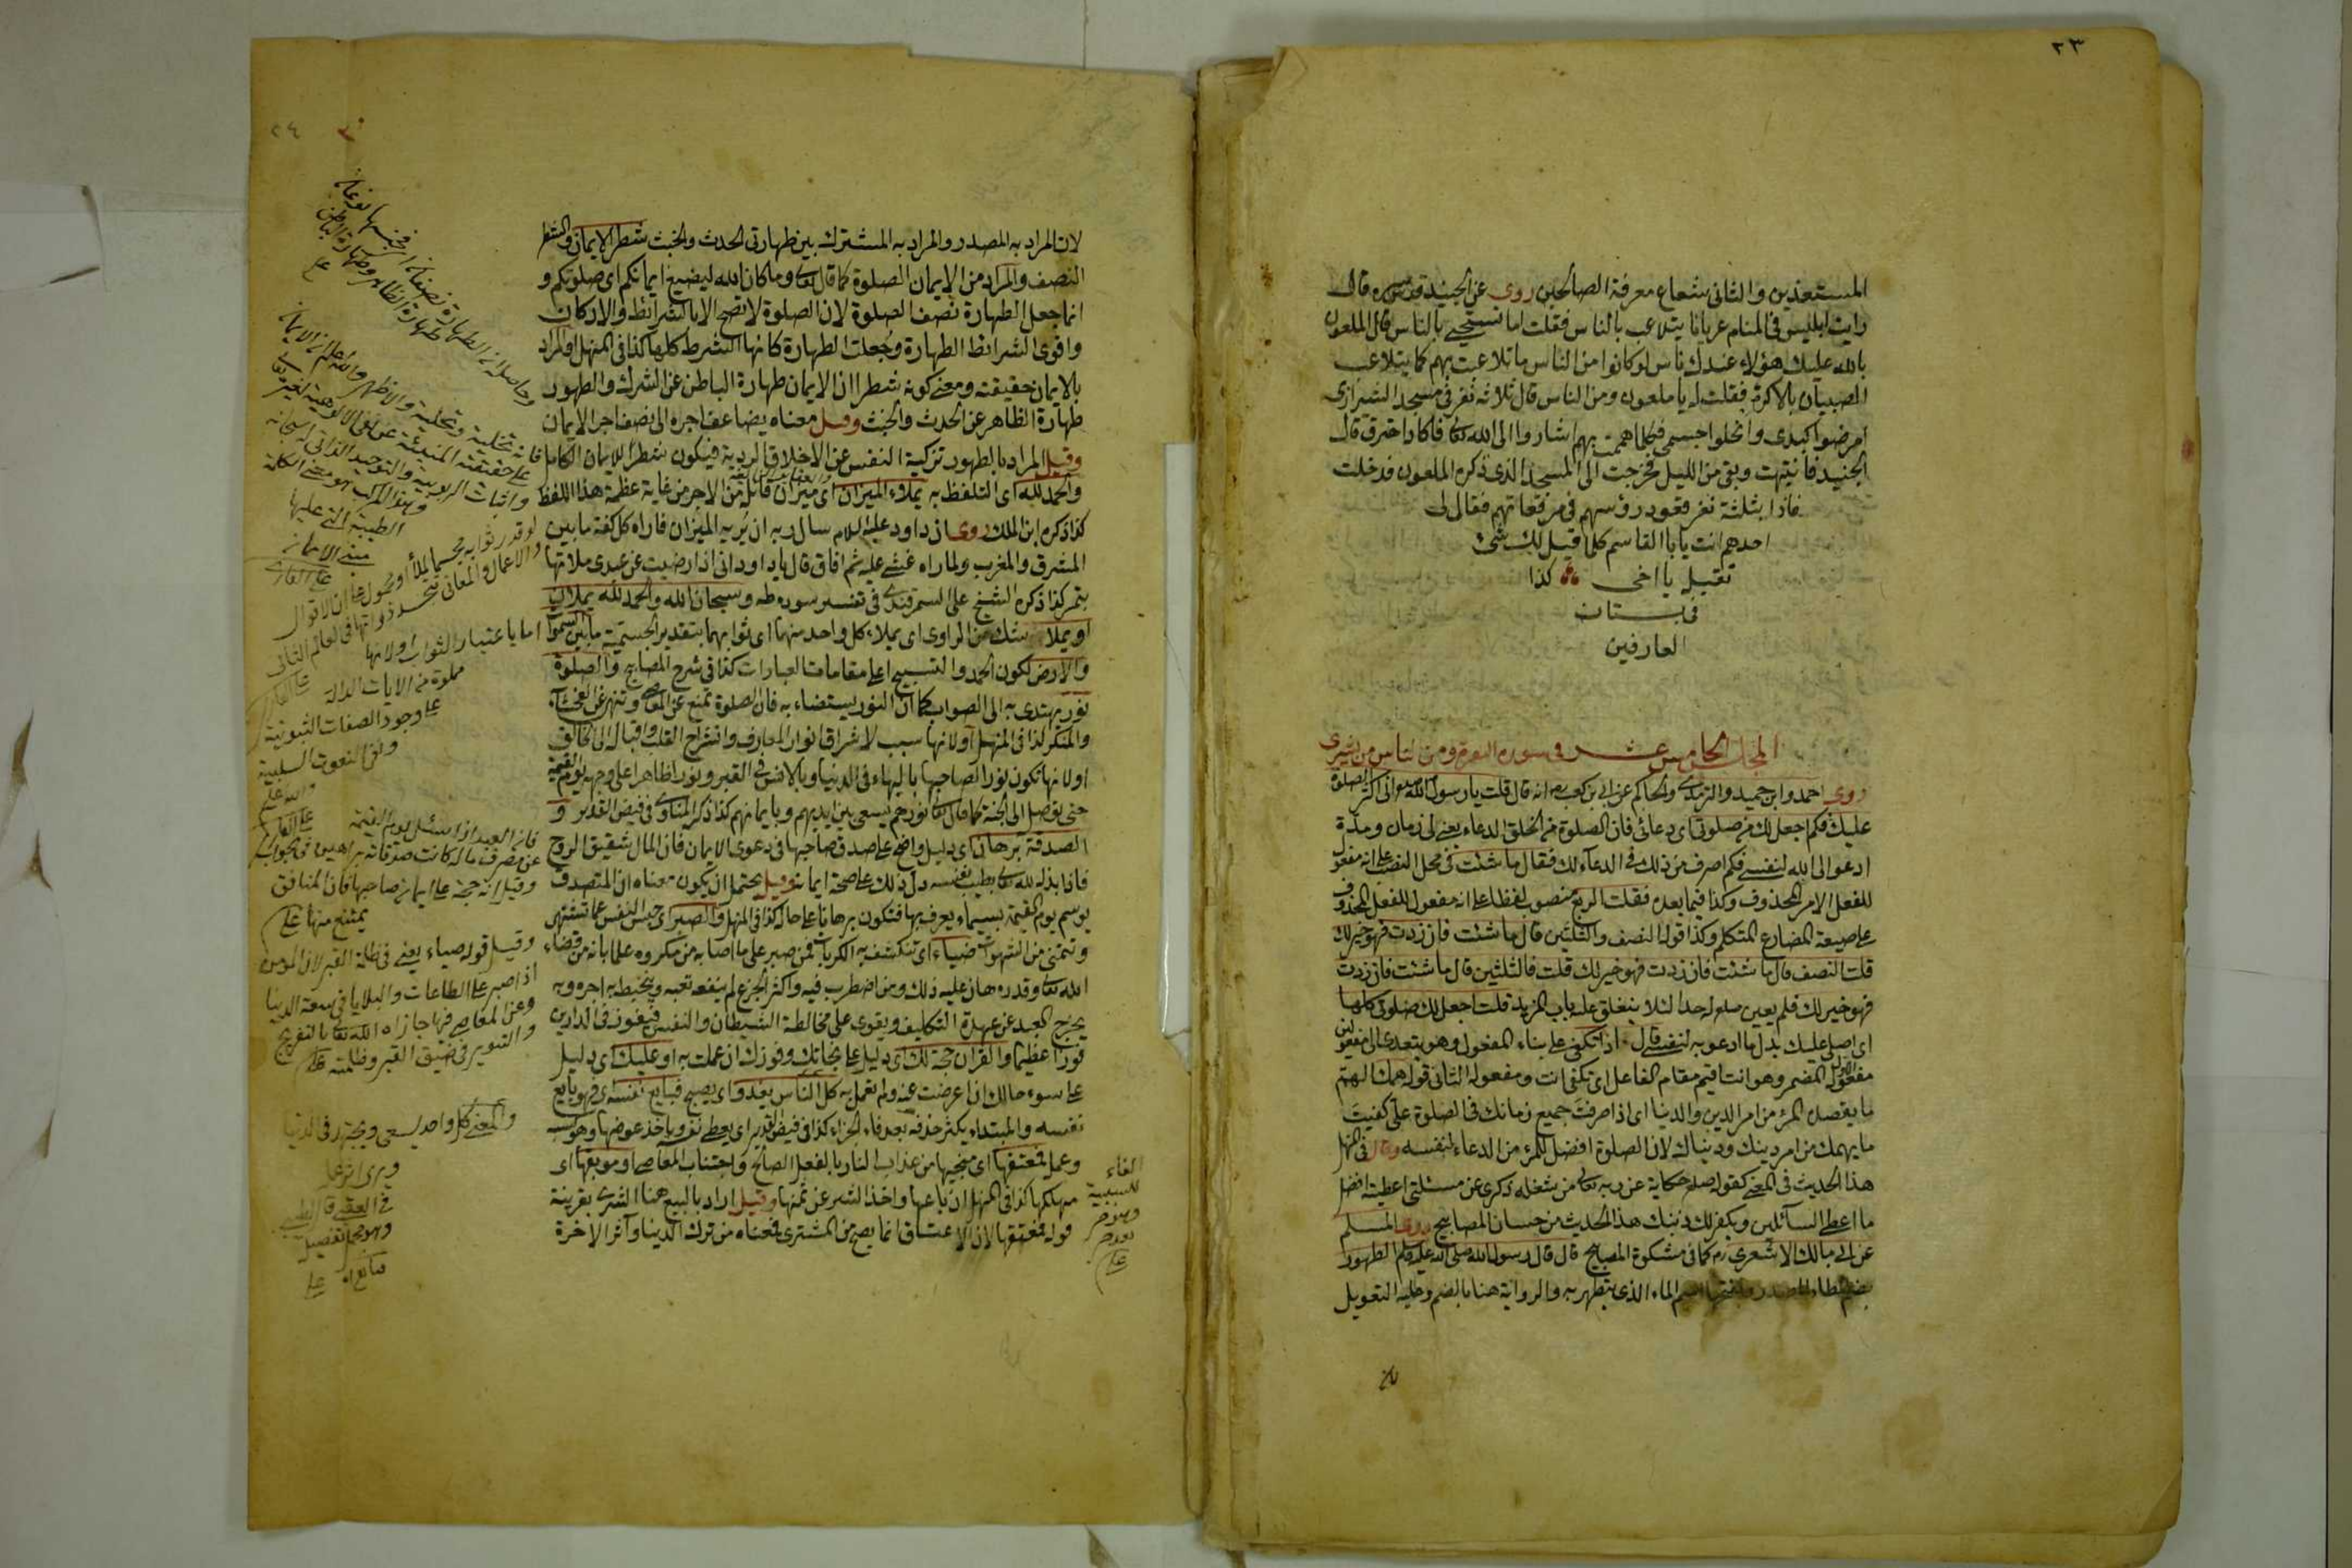 ٢٣
المستعذين والثانى شعاع معرفة الصالحين روى عن الجنيد قدس سره قال
رايت ابليس فى المنام عريانا يتلاعب بالناس فقلت اما تستحيى بالناس قال الملعون
بالله عليك هؤلاء عندك ناس لو كانوا من الناس ما تلاعبت بهم كما يتلاعب
الصبيان بالاكرة فقلت له يا ملعون ومن الناس قال ثلاثة نفر فى مسجد الشيرازى
امرضوا كبدى وانحلوا جسمى فكلما هممت بهم اشاروا الى الله تعالى فاكاد احترق قال
الجنيد فانتبهت وبقى من الليل فخرجت الى المسجد الذى ذكره الملعون فدخلت
فاذا بثلثة نفر قعود رؤسهم فى مرقعاتهم فقال لى
احدهم انت يا ابا القاسم كلما قيل لك شئ
تقبله يا اخى كذا
فى بستان
العارفين
المجلس الخامس عشر فى سورة البقرة ومن الناس من يشرى
روى احمد وابن حميد والترمذى والحاكم عن ابى بن كعب رض انه قال قلت يا رسول الله انى اكثر الصلوة
عليك فكم اجعل لك من صلوتى اى دعائى فان الصلوة من الخلق الدعاء يعنى لى زمان ومدة
ادعو الى الله لنفسى فكم اصرف من ذلك فى الدعاء لك فقال ما شئت فى محل النصب على انه مفعول
للفعل الامر المحذوف وكذا فيما بعده فقلت الربع منصوب لفظا على انه مفعول للفعل المحذوف
على صيغة المضارع المتكلم وكذا قوله النصف والثلثين قال ما شئت فان زدت فهو خير لك
قلت النصف قال ما شئت فان زدت فهو خير لك قلت فالثلثين قال ما شئت فان زدت
فهو خير لك فلم يعين صلعم له حدا لئلا ينغلق عليه باب المزيد قلت اجعل لك صلوتى كلها
اى اصلى عليك بدل ما ادعو به لنفسى قال اذا تكفى على بناء المفعول وهو يتعدى الى مفعولين
مفعوله الاول المضمر وهو انت اقيم مقام الفاعل اى تكفى انت ومفعوله الثانى قوله همك الهم
ما يقصد المرء من امر الدين والدنيا اى اذا صرفت جميع زمانك فى الصلوة على كفيت
ما يهمك من امر دينك ودنياك لان الصلوة افضل للمرء من الدعاء لنفسه وقال فى المنهل
هذا الحديث فى المعنى كقوله صلعم حكاية عن ربه تعالى من شغله ذكرى عن مسئلتى اعطيته افضل
ما اعطى السائلين ويكفر لك ذنبك هذا الحديث من حسان المصابيح روى المسلم
عن ابى مالك الاشعرى رض كما فى مشكوة المصابيح قال قال رسول الله صلى الله عليه وسلم الطهور
بضم الطاء المصدر وبفتحها اسم الماء الذى يتطهر به والرواية هنا بالضم وعليه التعويل
٢٤
لان المراد به المصدر والمراد به المشترك بين طهارتى الحدث والخبث شطر الايمان والشطر
النصف والمراد من الايمان الصلوة كما قال تعالى وما كان الله ليضيع ايمانكم اى صلوتكم و
انما جعل الطهارة نصف الصلوة لان الصلوة لا تصح الا بالشرائط والاركان
واقوى الشرائط الطهارة وجعلت الطهارة كانها الشرط كلها كذا فى المنهل او المراد
بالايمان حقيقته ومعنى كونه شطرا ان الايمان طهارة الباطن عن الشرك والطهور
طهارة الظاهر عن الحدث والخبث وقيل معناه يضاعف اجره الى نصف اجر الايمان
وقيل المراد بالطهور تزكية النفس عن الاخلاق الردية فيكون شطرا للايمان الكامل
والحمد لله اى التلفظ به يملاء الميزان اى ميزان قائله من الاجر من غاية عظمة هذا اللفظ
كذا ذكره ابن الملك روى ان داود عليه السلام سال ربه ان يريه الميزان فاراه كل كفة ما بين
المشرق والمغرب ولما راه غشى عليه ثم افاق قال يا داود انى اذا رضيت عن عبدى ملاتها
بتمر كذا ذكره الشيخ على السمرقندى فى تفسير سورة طه وسبحان الله والحمد لله يملآن
او يملأ شك من الراوى اى يملاء كل واحد منهما اى ثوابهما بتقدير الجسمية ما بين السموات
والارض لكون الحمد والتسبيح اعلى مقامات العبارات كذا فى شرح المصابيح والصلوة
نور يهتدى به الى الصواب كما ان النور يستضاء به فان الصلوة تمنع عن المعاصى وتنهى عن الفحشاء
والمنكر كذا فى المنهل او لانها سبب لاشراق انوار المعارف وانشراح القلب واقباله الى الخالق
او لانها تكون نورا لصاحبها بالبهاء فى الدنيا وبالانس فى القبر ونورا ظاهرا على وجهه يوم القيمة
حتى يوصل الى الجنة كما قال تعالى نورهم يسعى بين ايديهم وبايمانهم كذا ذكر المناوى فى فيض القدير و
الصدقة برهان اى دليل واضح على صدق صاحبها فى دعوى الايمان فان المال شقيق الروح
فاذا بذله لله تعالى بطيب نفسه دل ذلك على صحة ايمانه وقيل يحتمل ان يكون معناه ان المتصدق
يوسم يوم القيمة بسيماء يعرف بها فتكون برهانا على حاله كذا فى المنهل والصبر اى حبس النفس عما تشتهى
وتتمنى من الشهوات ضياء اى تنكشف به الكربات فمن صبر على ما اصابه من مكروه علما بانه من قضاء
الله تعالى وقدره هان عليه ذلك ومن اضطرب فيه واكثر الجزع لم ينفعه تعبه ويحبط به اجره وبه
يخرج العبد عن عهدة التكليف ويقوى على مخالطة الشيطان والنفس فيفوز فى الدارين
فوزا عظيما والقرآن حجة لك اى دليل على نجاتك وفوزك ان عملت به او عليك اى دليل
على سوء حالك ان اعرضت عنه ولم تعمل به كل الناس يغدو اى يصبح فبايع نفسه اى فهو بايع
نفسه والمبتداء يكثر حذفه بعد فاء الجزاء كذا فى فيض القدير اى يعطى نفسه وياخذ عوضها وهو كسبه
وعمله فمعتقها اى منجيها من عذاب النار بالفعل الصالح واجتناب المعاصى او موبقها اى
مهلكها كذا فى المنهل ان باعها واخذ الشر عن ثمنها وقيل اراد بالبيع هنا الشرى بقرينة
قوله فمعتقها لان الاعتاق انما يصح من المشترى فمعناه من ترك الدنيا وآثر الاخرة
وحاصله ان الطهارة نصفان
طهارة الظاهر وطهارة الباطن
لو قدر ثوابه مجسما يملأ او محمول على ان الاقوال
والاعمال والمعانى تتجسد ذواتها فى العالم الثانى
على القارى
اما باعتبار الثواب او لانها
مملوة من الايات الدالة
على وجود الصفات الثبوتية
ونفى النعوت السلبية
فان العبد اذا سئل يوم القيمة
عن مصرف ماله كانت صدقاته براهين فى جواب
وقيل انه حجة على ايمان صاحبها فان المنافق
يمتنع منها
وقيل قوله ضياء يعنى فى ظلمة القبر لان المؤمن
اذا صبر على الطاعات والبلايا فى سعة الدنيا
وعن المعاصى فيها جازاه الله تعالى بالتفريج
والتنوير فى ضيق القبر وظلمته
والمعنى كل واحد يسعى ويجتهد فى الدنيا
الفاء
للسببية